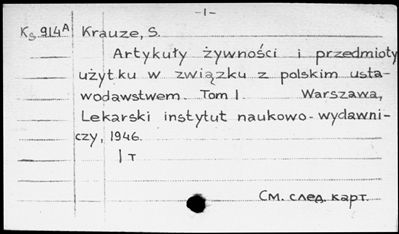 -1-
Ks 914A Krauze, S.
Artykuły żywności i przedmioty
użytku w związku z polskim usta-
wodawstwem. Tom I Warszawa,
Lekarski instytut naukowo-wydawni-
czy, 1946.
1 т
См. след. карт.